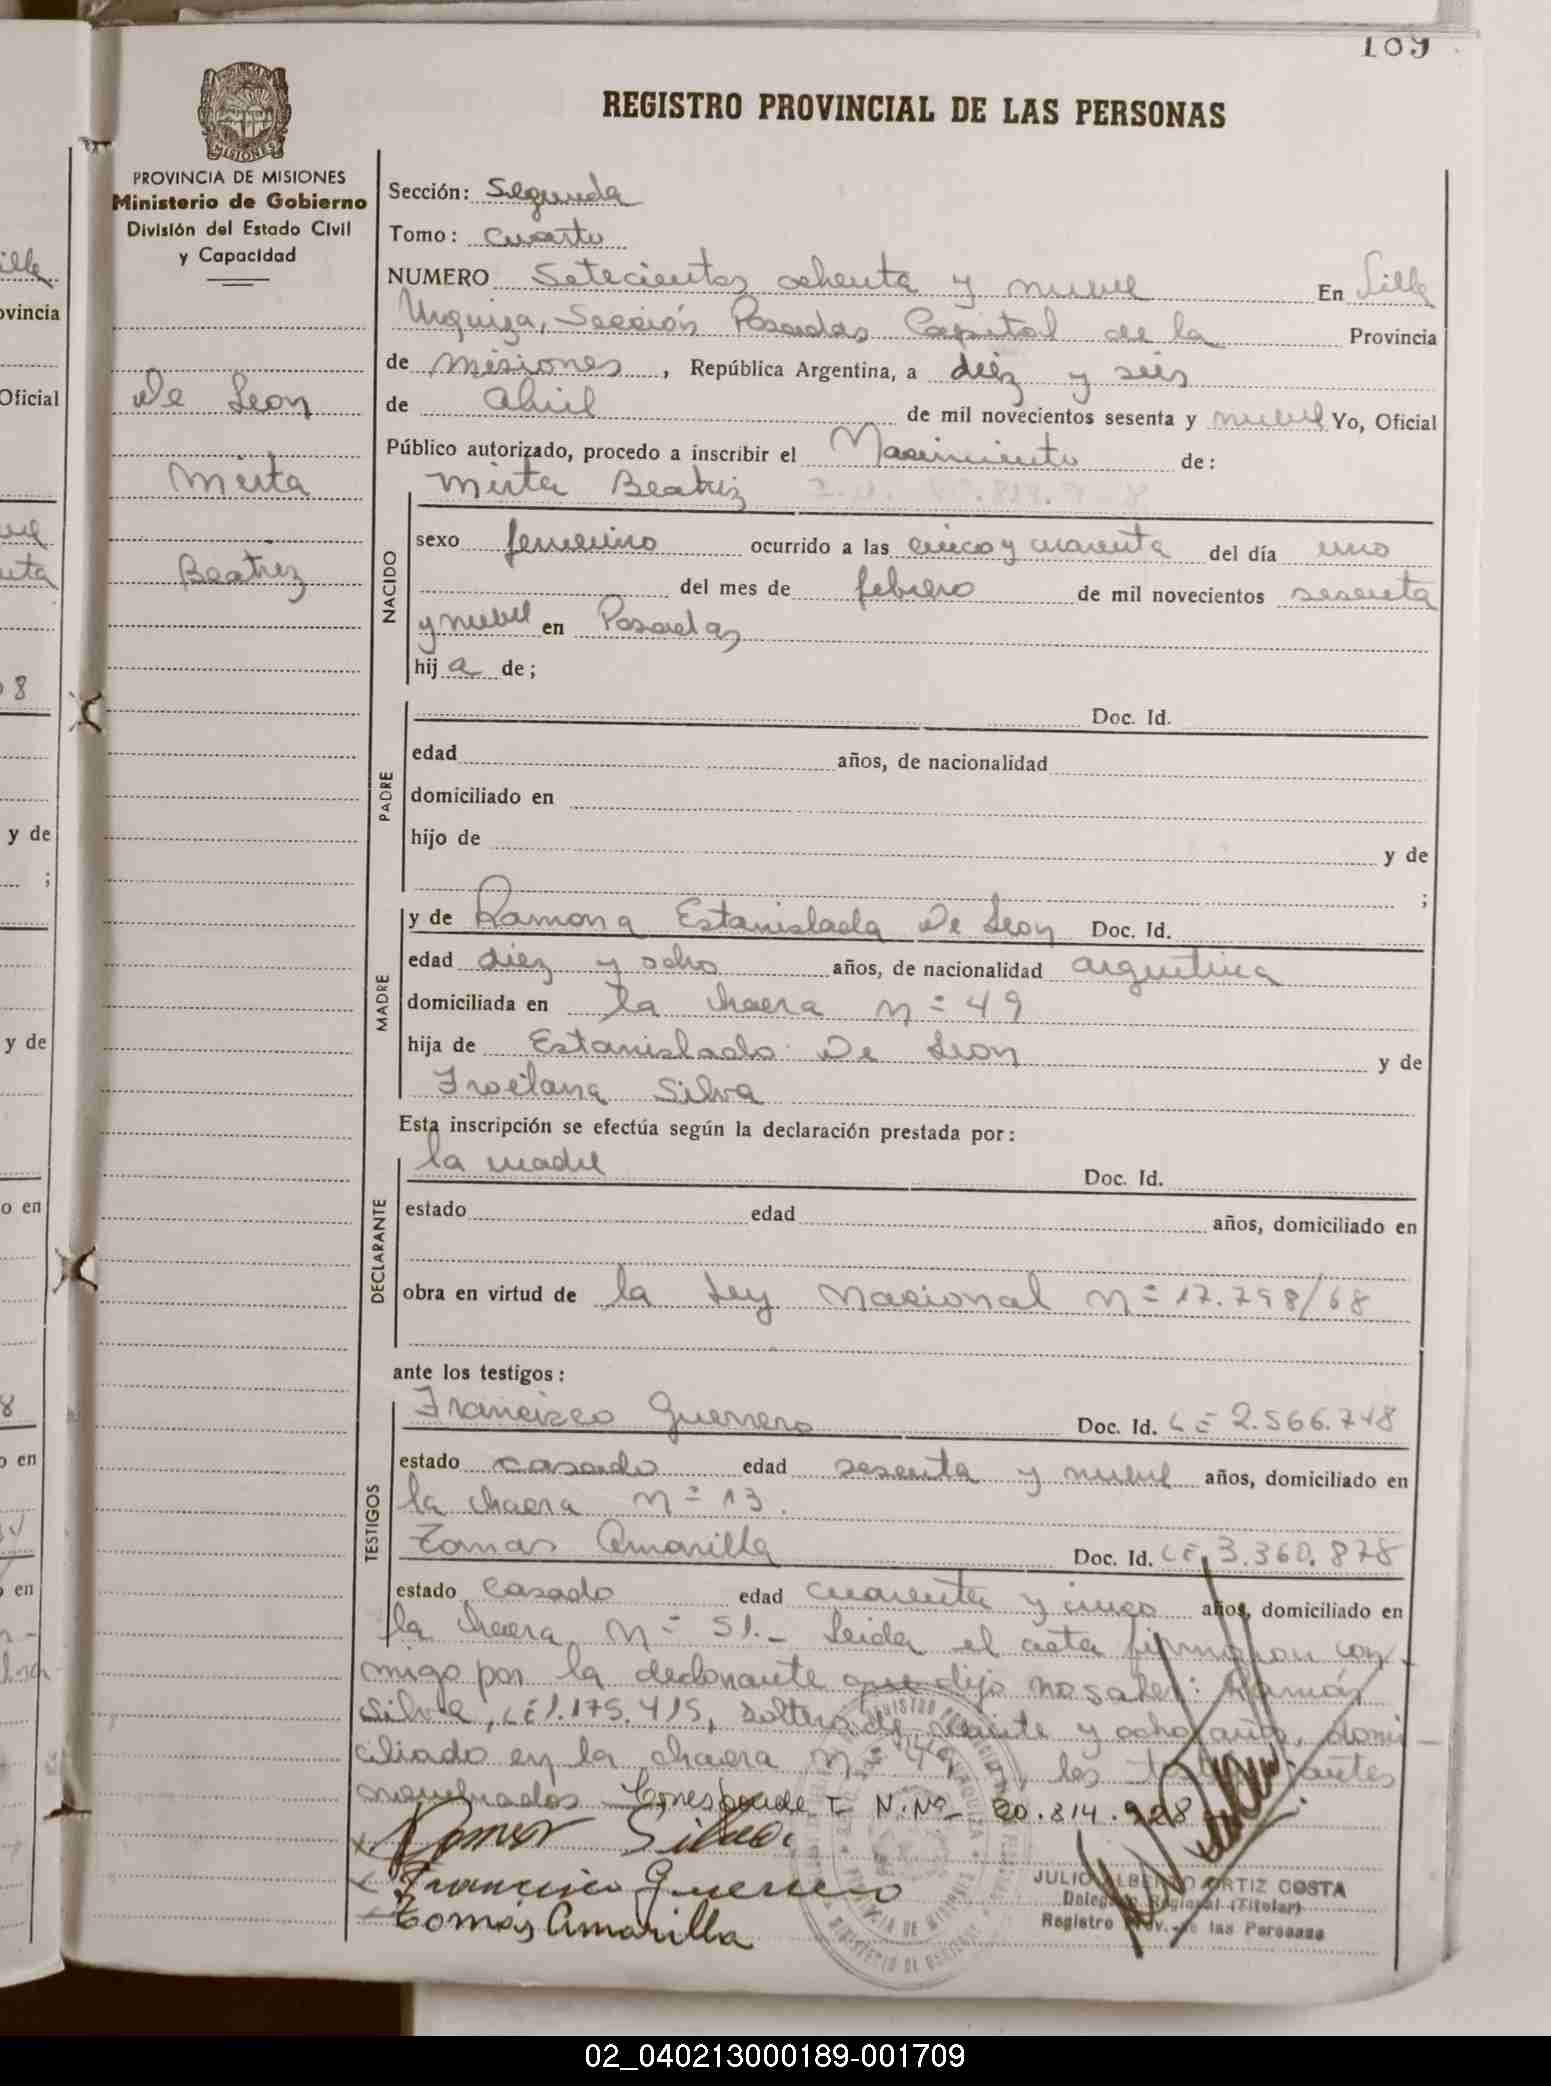 109
REGISTRO PROVINCIAL DE LAS PERSONAS
MISIONES
PROVINCIA DE MISIONES
Ministerio de Gobierno
División del Estado Civil
y Capacidad
De Leon
Mirta
Beatriz
Sección: Segunda
Tomo: Cuarto
NUMERO Setecientos ochenta y nueve En Lille
Urquiza, Sección Posadas Capital de la Provincia
de Misiones, República Argentina, a diez y seis
de abril de mil novecientos sesenta y nueve Yo, Oficial
Público autorizado, procedo a inscribir el Nacimiento de:
NACIDO
Mirta Beatriz
sexo femenino ocurrido a las cinco y cuarenta del día uno
del mes de febrero de mil novecientos sesenta
y nueve en Posadas
hija de;
PADRE
Doc. Id.
edad años, de nacionalidad
domiciliado en
hijo de y de
;
MADRE
y de Ramona Estanislada De Leon Doc. Id.
edad diez y ocho años, de nacionalidad argentina
domiciliada en la chacra n= 49
hija de Estanislado De Leon y de
Froilana Silva
Esta inscripción se efectúa según la declaración prestada por:
DECLARANTE
la madre Doc. Id.
estado edad años, domiciliado en
obra en virtud de la Ley Nacional n= 17.798/68
ante los testigos:
TESTIGOS
Francisco Guerrero Doc. Id. LE 2.566.748
estado casado edad sesenta y nueve años, domiciliado en
la chacra n= 13.
Tomas Amarilla Doc. Id. LE 3.360.878
estado casado edad cuarenta y cinco años, domiciliado en
la chacra n= 51.- Leida el acta firmaron con
migo por la declarante que dijo no saber: Ramón
Silva, LE 1.175.415, soltero de veinte y ocho años, domi-
ciliado en la chacra n= 49, los testigos antes
nombrados Corresponde I N.Nº 20.814.928
Ramon Silva
Francisco Guerrero
Tomás Amarilla
JULIO ALBERTO ORTIZ COSTA
Delegado Regional (Titular)
Registro Prov. de las Personas
ille
ovincia
Oficial
8
y de
;
y de
o en
8
o en
o en
02_040213000189-001709